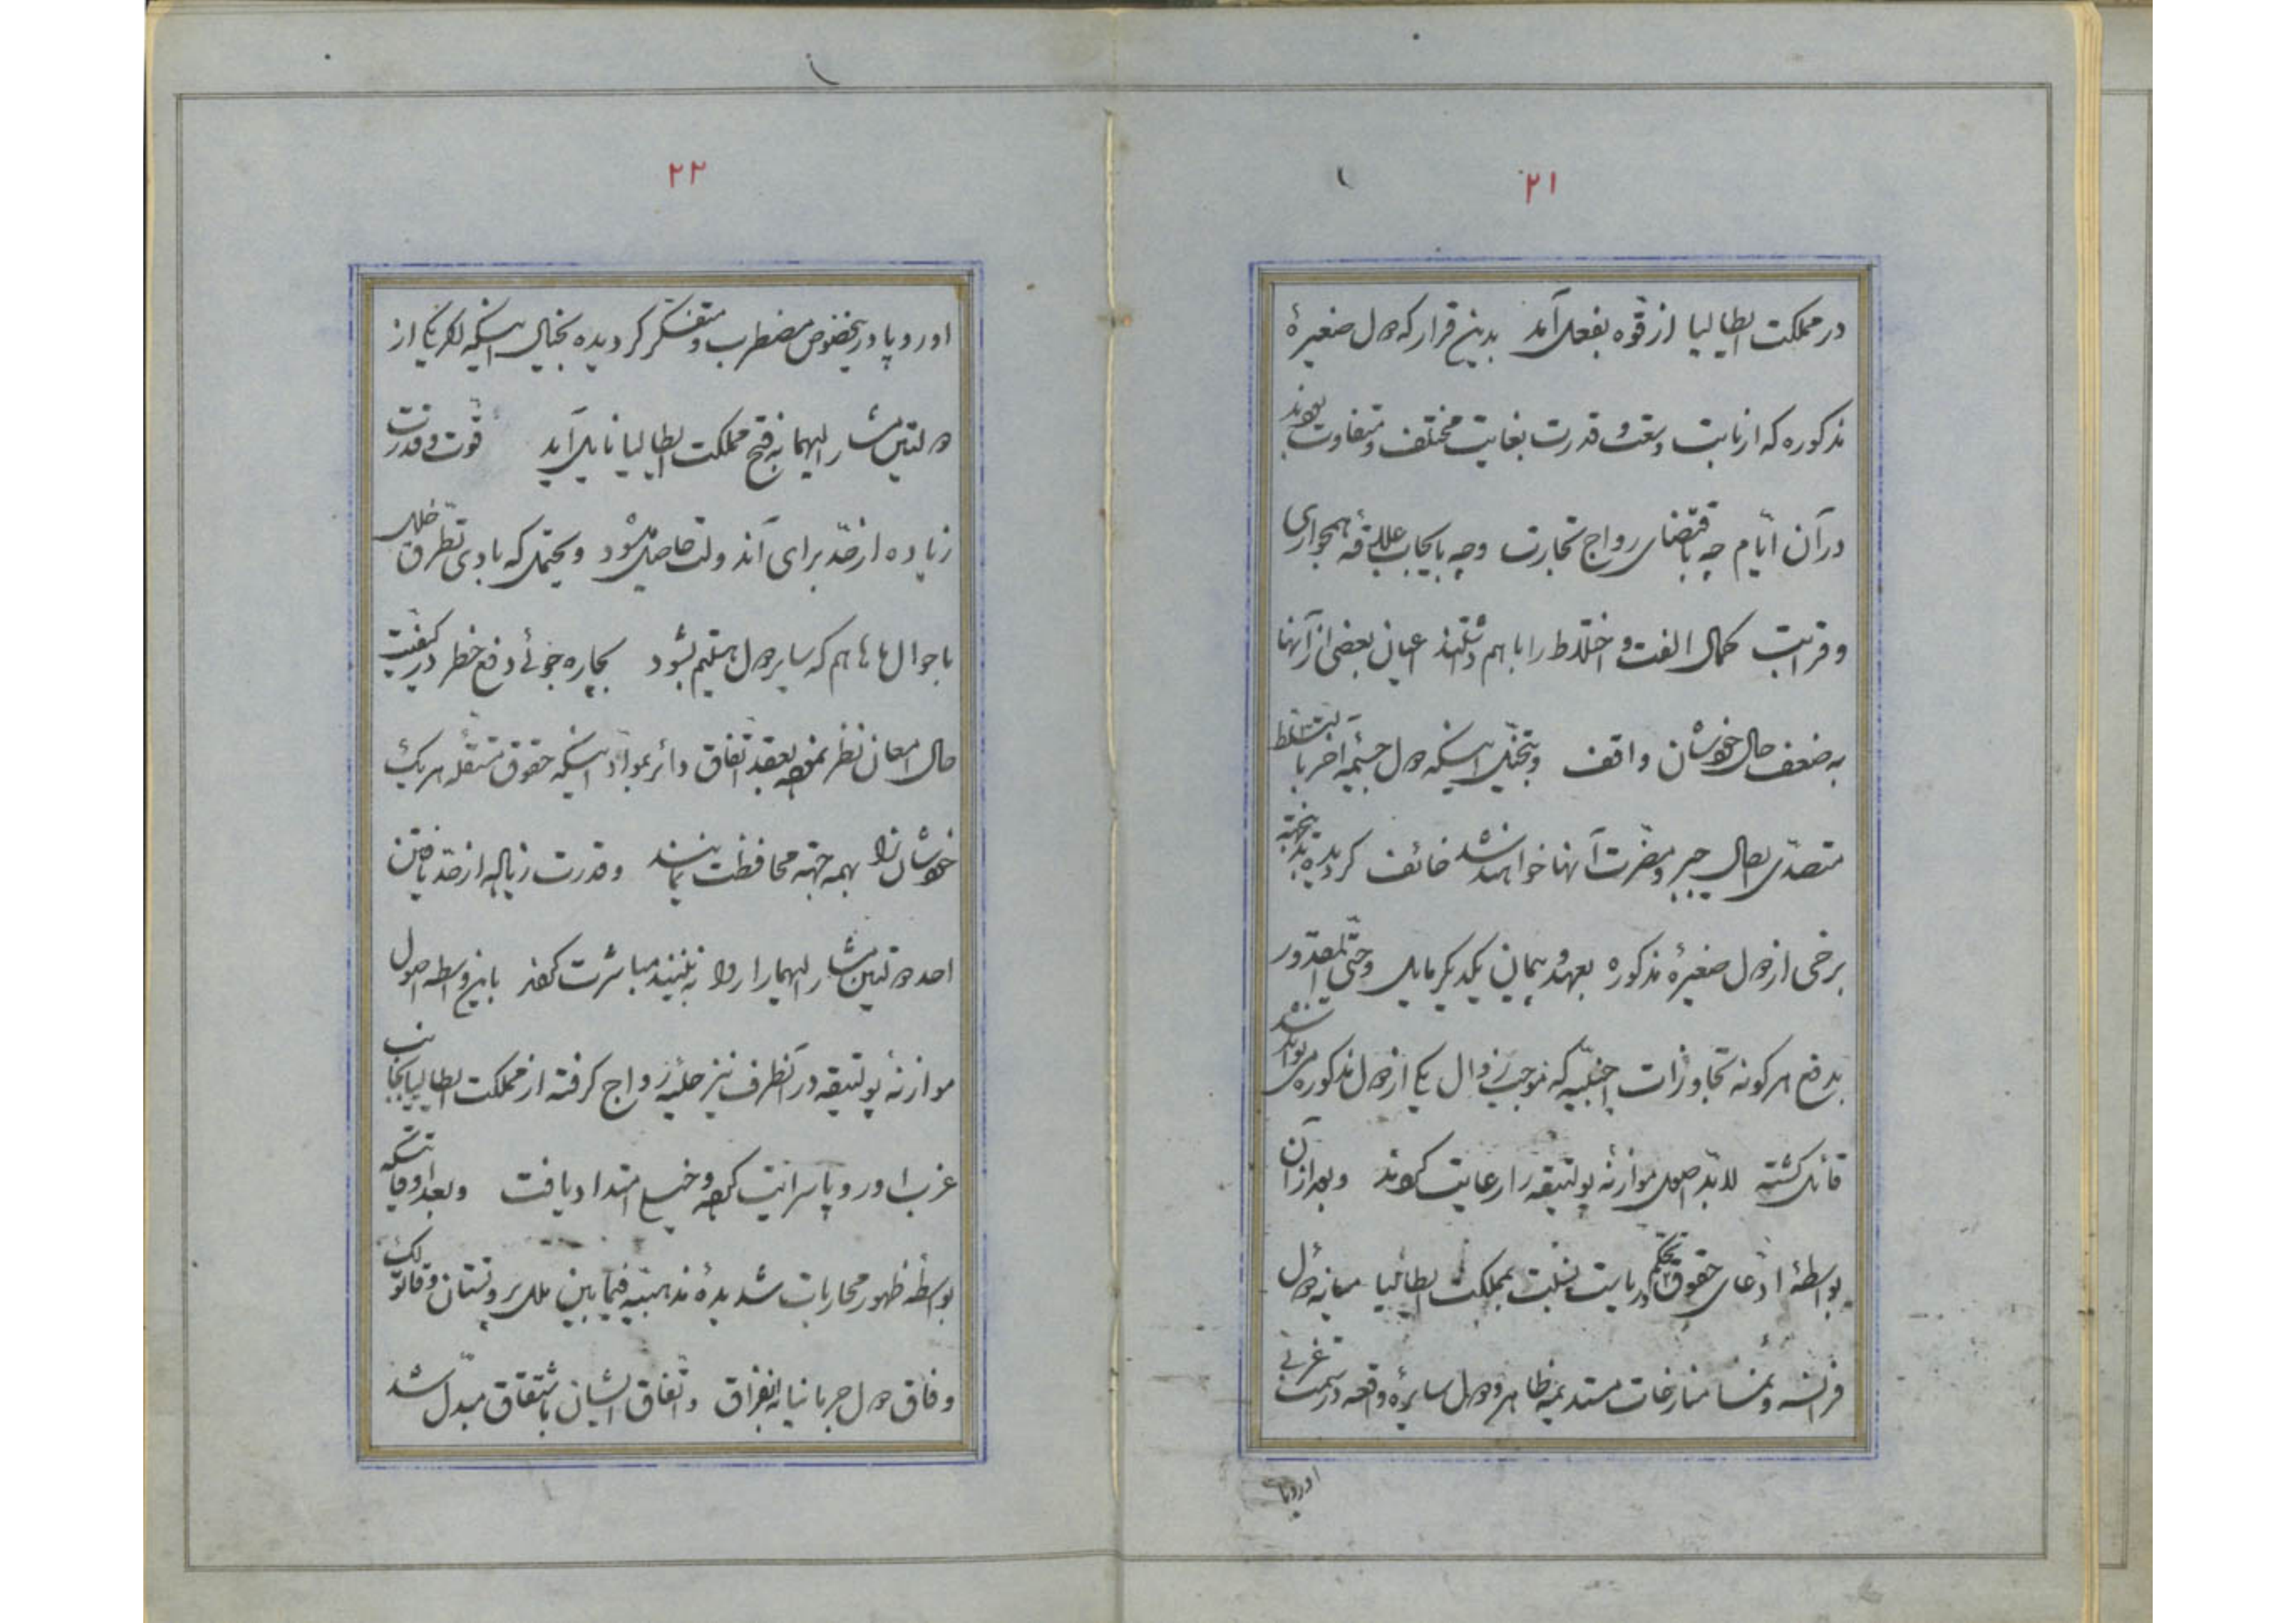 ۲۱
در مملکت ایطالیا از قوه بفعل آمد بدین قرار که دول صغیرهٔ
مذکوره که از بابت وسعت و قدرت بغایت مختلف و متفاوت بودند
در آن ایّام چه باقتضای رواج تجارت و چه بایجاب علاقهٔ همجواری
و قرابت کمال الفت و اختلاط را با هم داشتند اعیان بعضی از آنها
به ضعف حال خودشان واقف و بتخیّل اینکه دول جسیمهٔ اخر با تسلط
متصدّی ایصال جبر و مضرت آنها خواهند شد خائف گردیده بدینجهة
برخی از دول صغیرهٔ مذکوره بعهد و پیمان یکدیگر مایل و حتّی المقدور
بدفع هر گونه تجاوزات اجنبیّه که موجب زوال یکی از دول مذکوره می تواند شد
قائل گشته لابدّ اصول موازنهٔ پولتیقه را رعایت کردند و بعد از آن
بواسطهٔ ادّعای حقوق تحکم و ریاست نسبت بمملکت ایطالیا میانهٔ دول
فرانسه و نمسا منازعات مستدیمه ظاهر و دول سایرهٔ واقعه در سمت غربی
اوروپا
۲۲
اوروپا در اینخصوص مضطرب و متفکر گردیده بخیال اینکه اگر یکی از
دولتین مشار الیهما به فتح مملکت ایطالیا نایل آید قوت و قدرت
زیاده از حدّ برای آندولت حاصل میشود و یحتمل که بادی تطرق خلل
باحوال ها هم که سایر دول هستیم بشود بچاره جوئی دفع خطر در کیفیت
حال امعان نظر نموده بعقد اتفاق دائر بمواد اینکه حقوق مستقله هر یک
خودشان را بهمه جهة محافظت نمایند و قدرت زیاده از حدّ یافتن
احد دولتین مشار الیهما را روا نه بینند مباشرت کردند باین واسطه اصول
موازنهٔ پولتیقه در آنطرف نیز حلیهٔ رواج گرفته از مملکت ایطالیا بجانب
غرب اوروپا سرایت کرده و خیلی امتداد یافت و بعد اوقاتیکه
بواسطهٔ ظهور محاربات شدیدهٔ مذهبیّه فیمابین ملل پروتستان و قاتولک
وفاق دول جرمانیا به افتراق و اتفاق ایشان باشتقاق مبدّل شد